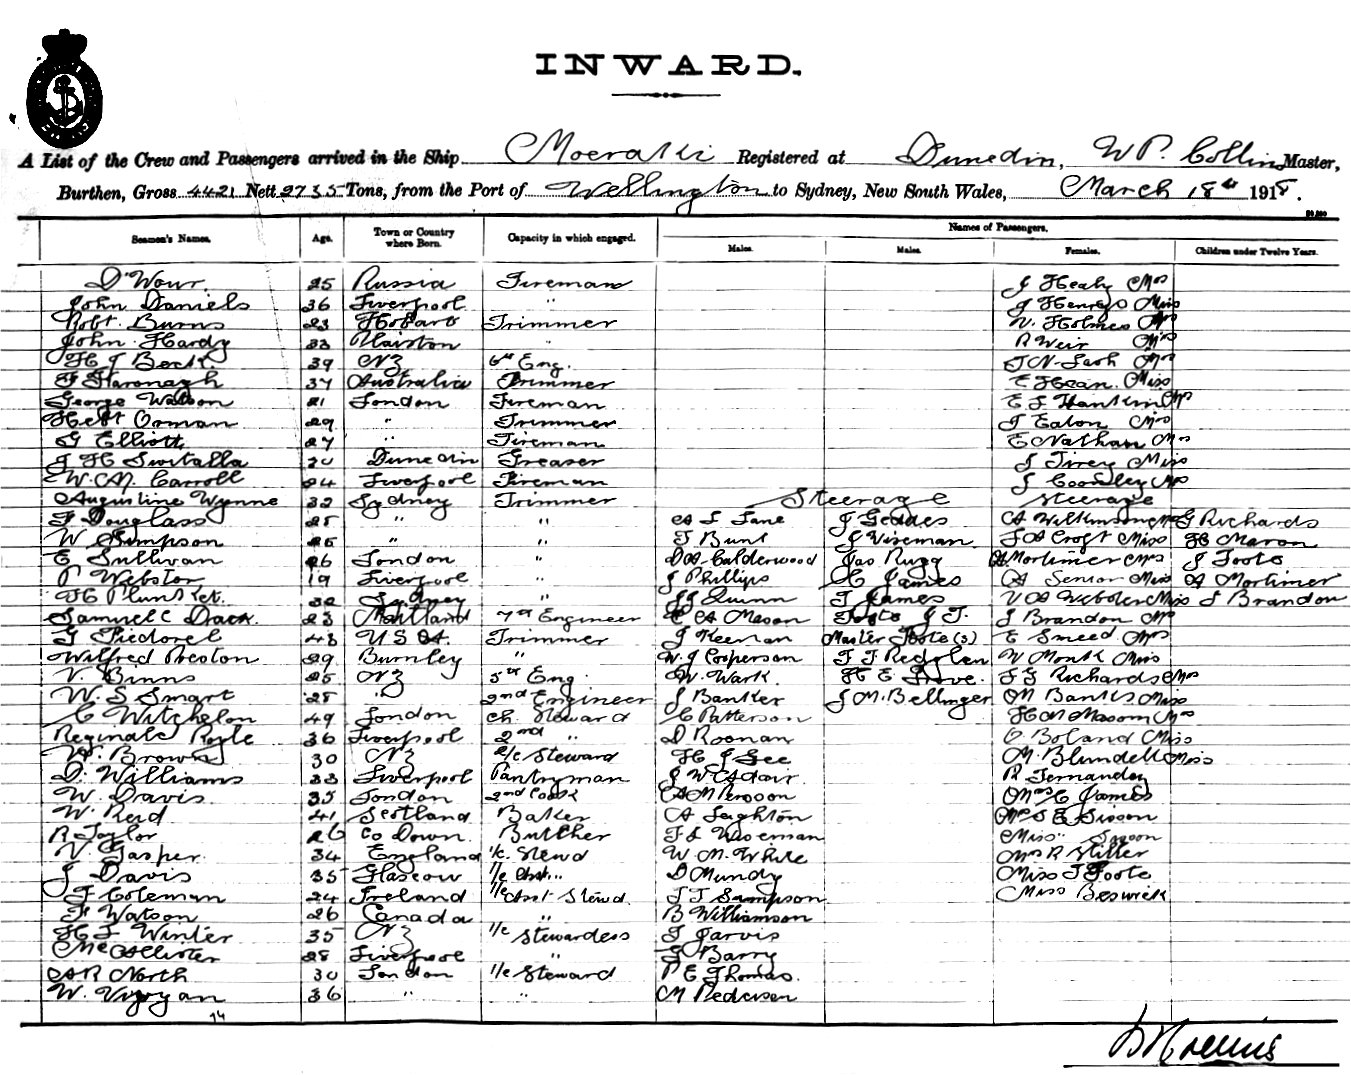 INWARD.
A List of the Crew and Passengers arrived in the Ship Moeraki Registered at Dunedin, W P. Collins Master,
Burthen, Gross 4421 Nett 2735 Tons, from the Port of Wellington to Sydney, New South Wales, March 18th 1918.
Names of Passengers.
Seamen's Names. Age. Town or Country where Born. Capacity in which engaged. Males. Males. Females. Children under Twelve Years.
25 Russia Fireman J Healy Mrs
John Daniels 36 Liverpool " J Henrys Miss
Robt. Burns 23 Hobart Trimmer V. Holmes
John Hardy 33 " R Weir
H J Beck 39 NZ 6th Eng.
37 Australia Trimmer E Hean Miss
George Watson 21 London Fireman
29 " Trimmer J Eaton Mrs
G Elliott 27 " Fireman E Nathan Mrs
J H Switalla 20 Dunedin Greaser J Tirrey Miss
W. M. Carroll 24 Liverpool Fireman
Augustine Wynne 32 Sydney Trimmer Steerage Steerage
F Douglass 25 " " A L Lane J Geddes A Wilkinson G Richards
W Simpson 25 " " T Bunt J Wiseman F A Croft Miss
E Sullivan 26 London " D A Calderwood Jas Rugg A Mortimer Mrs J Foote
P Webster 19 Liverpool " J Phillips C James A Senior Miss A Mortimer
H Plunket. 32 Sydney " J J Quinn T James V A Webster Miss J Brandon
Samuel C Dack. 23 Maitland 7th Engineer E A Mason Foote J T. J Brandon
43 USA. Trimmer J Keenan Master Foote (s) E Smeed Mrs
Wilfred Preston 29 Burnley " W. J Cooperson W Monk Miss
V. Binns 25 NZ 5th Eng. W. Wark. H E Grove. Richards Mrs
W. S Smart 28 " 2nd Engineer J Banker J M. Bellinger M Banks Miss
C Witchelon 49 London Ch. Steward C Patterson H M Masom Mrs
Reginald Royle 36 Liverpool 2nd " D Roonan C Boland Miss
W. Brown 30 NZ Steward H J Gee M. Blundell Miss
D. Williams 33 Liverpool Pantryman J W Adair R Fernandez
W. Davis 35 London 2nd Cook Mrs C James
W. Reid 41 Scotland Baker A Leighton Mrs S E Sisson
R Taylor 26 Co Down. Butcher Miss " Sisson
V. Gasper. 34 England 1/c. Stewd W. M. White Mrs R Stiller
J Davis 35 Glascow 1/c Asst.. D Mundy Miss J Foote
F Coleman 24 Ireland 1/c Asst Stewd. J T Sampson Miss Beswick
F Watson 26 Canada " B Williamson
H F Winter 35 NZ 1/c Stewardess J Jarvis
McAllister 28 Liverpool " J Barry
A R North 30 London 1/c Steward P E Thomas.
W. Vivyan 36 " " M Pedersen